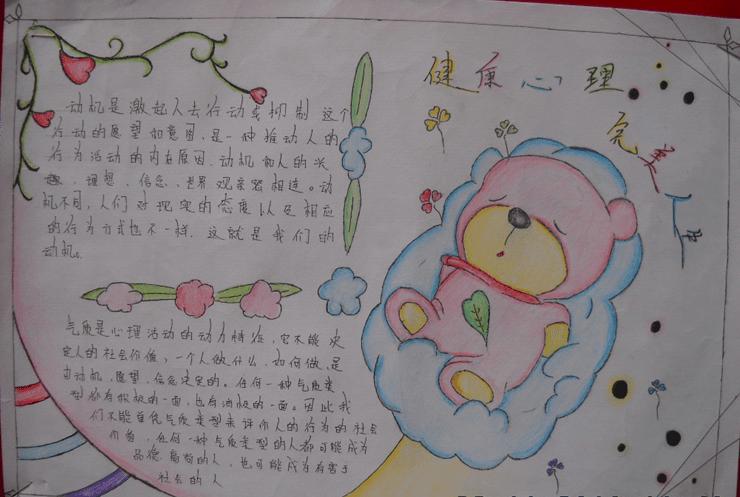 健康心理
完美人生
动机是激起人去行动或抑制这个
行动的愿望和意图,是一种推动人的
行为活动的内在原因.动机和人的兴
趣、理想、信念、世界观紧密相连。动
机不同,人们对现实的态度以及相应
的行为方式也不一样.这就是我们的
动机。
气质是心理活动的动力特征,它不能决
定人的社会价值,一个人做什么、如何做,是
由动机,愿望,信念决定的。任何一种气质类
型都有积极的一面,也有消极的一面。因此我
们不能单凭气质类型来评价人的行为的社会
价值,任何一种气质类型的人都可能成为
品德高尚的人,也可能成为有害于
社会的人